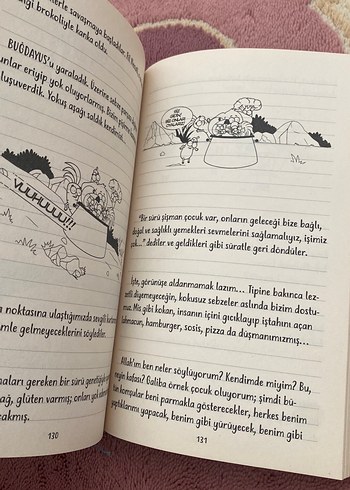 savaşmaya başladılar.
brokoliyle kanka oldu.
BUĞDAYUS'u yaraladık. Üzerine
eriyip yok oluyorlarmış.
Yokuş aşağı saldık kendimizi
YUUHUUUU!!!
noktasına ulaştığımızda sevgili
gelmeyeceklerini söylediler.
gereken bir sürü
glüten varmış; onları yok
130
"Bir sürü şişman çocuk var, onların geleceği bize bağlı,
doğal ve sağlıklı yemekleri sevmelerini sağlamalıyız, işimiz
çok..." dediler ve geldikleri gibi süratle geri döndüler.
İşte, görünüşe aldanmamak lazım... Tipine bakınca lez-
zetli diyemeyeceğin, kokusuz sebzeler aslında bizim dostu-
muz. Mis gibi kokan, insanın içini gıcıklayıp iştahını açan
lahmacun, hamburger, sosis, pizza da düşmanımızmış...
Allah'ım ben neler söylüyorum? Kendimde miyim? Bu,
neyin kafası? Galiba örnek çocuk oluyorum; şimdi bü-
tün komşular beni parmakla gösterecekler, herkes benim
yaptıklarımı yapacak, benim gibi yürüyecek, benim gibi
131